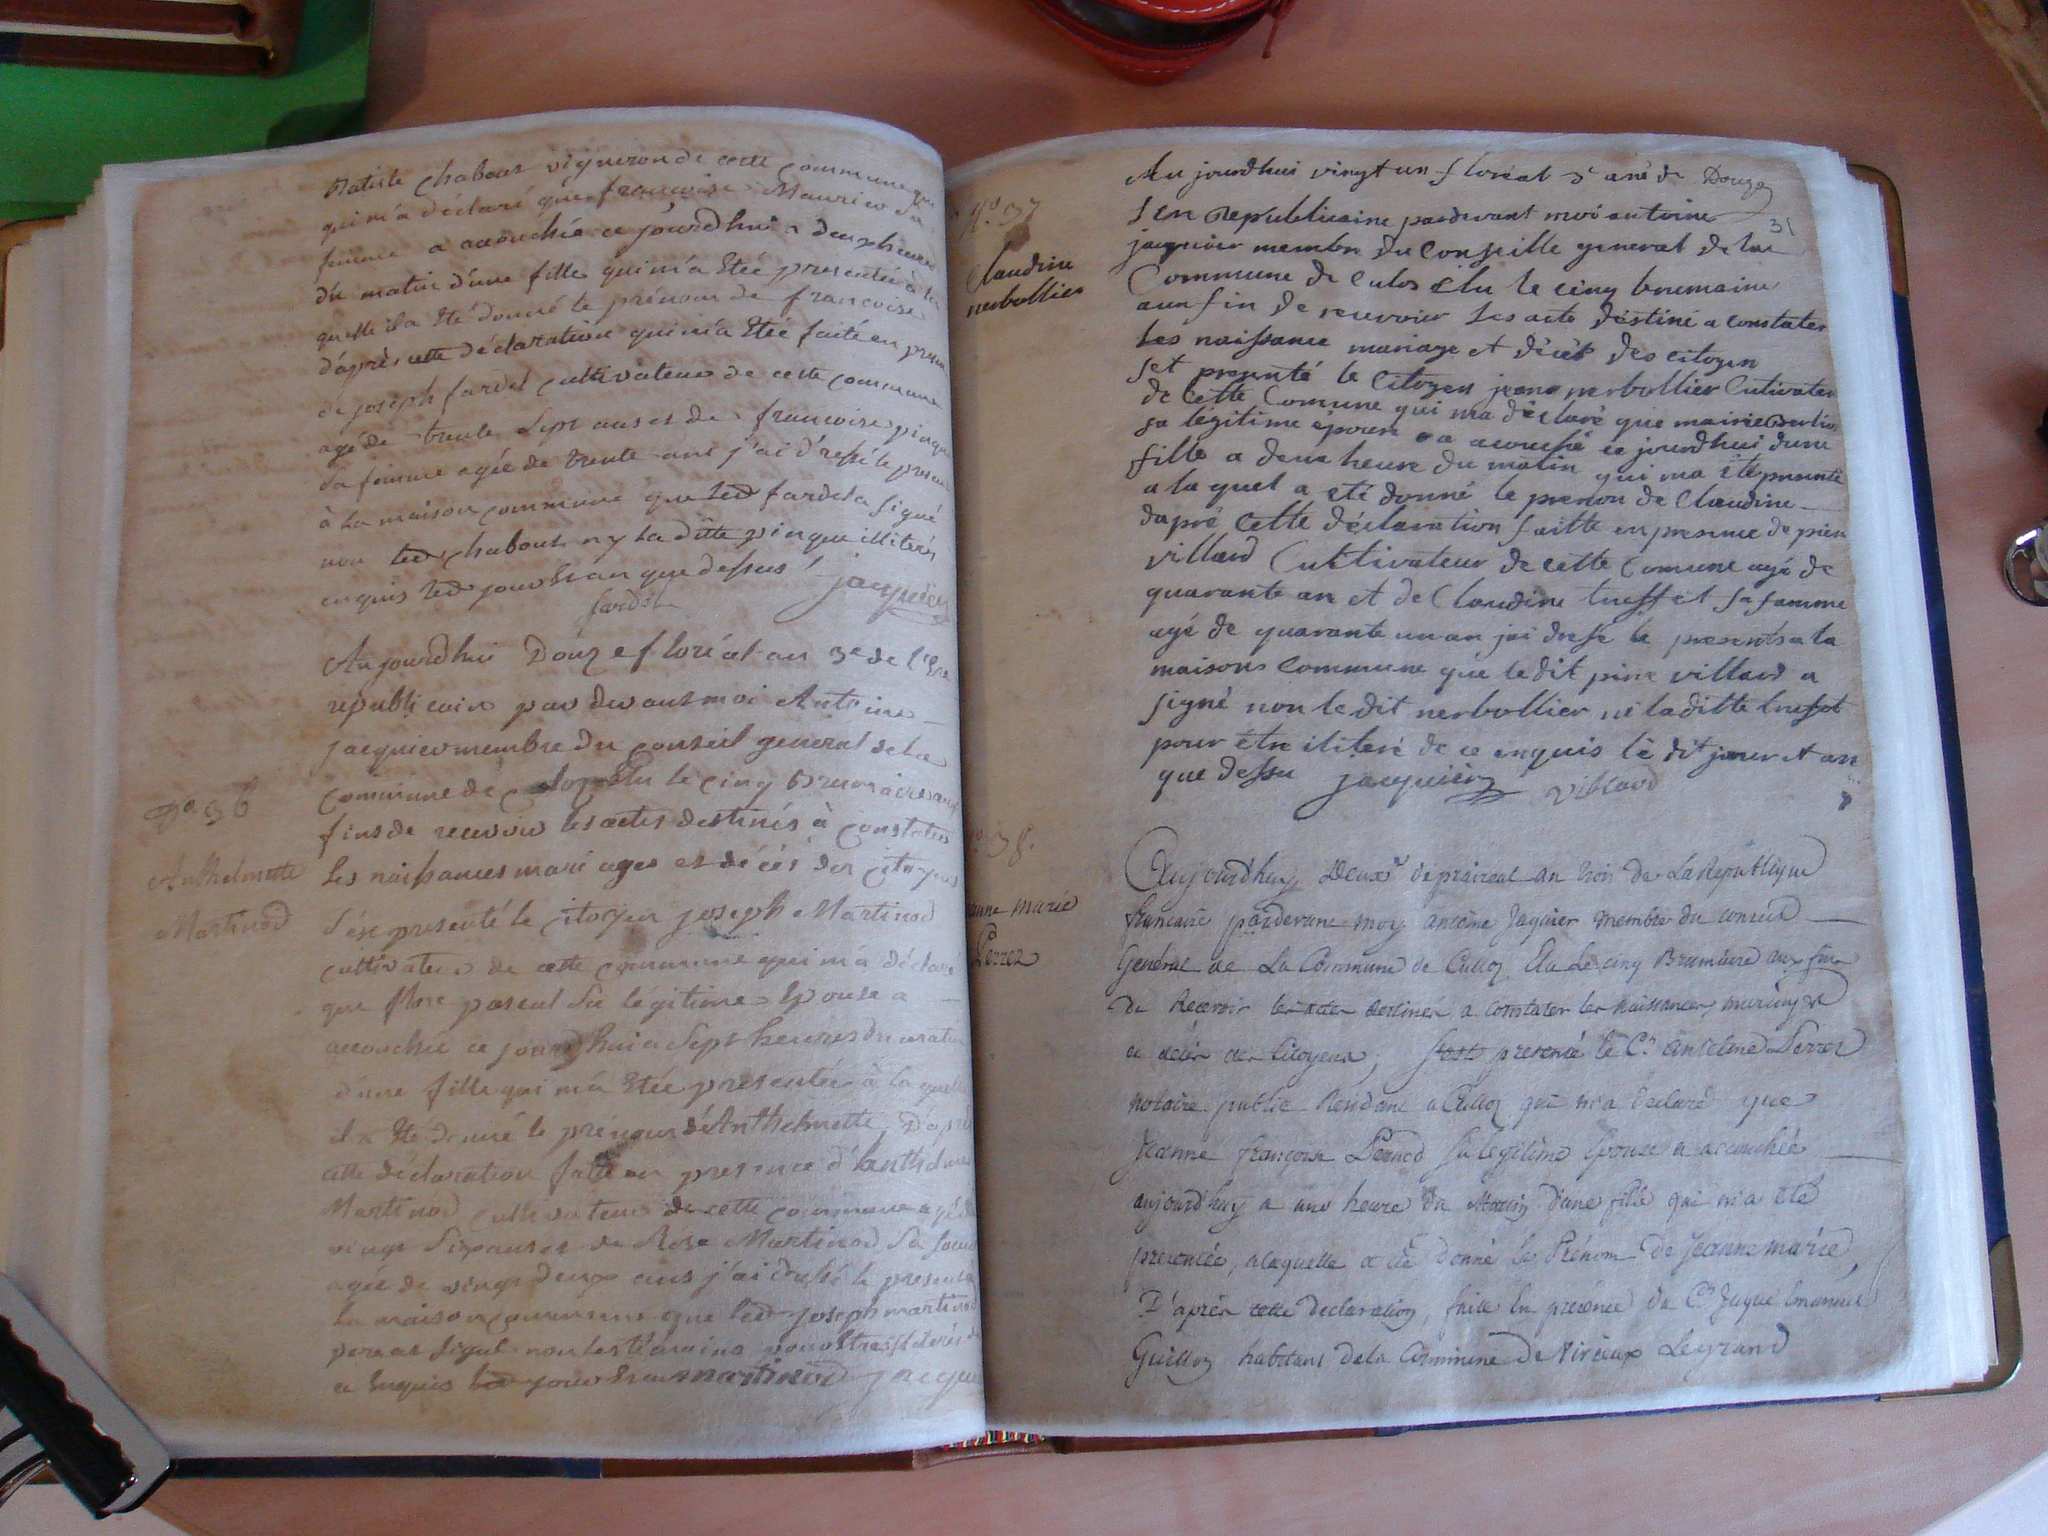 Batiste Chabout vigneron de cette Commune
qui m'a déclaré que françoise Maurier sa
femme a accouchée ce jourdhui a deux heures
du matin d'une fille qui m'a étée presentée à la
quelle il a été donné le prénom de françoise
d'après cette déclaration qui m'a étée faite en
de joseph fardel cultivateur de cette commune
agé de trente Sept ans et de françoise pinque
sa femme agée de trente ans j'ai dressé le
à la maison commune que led fardel a signé
non led chabout ny la ditte pinque
enquis led jour et an que dessus jacquier
fardel
Aujourdhui Douze floréal an 3e de l'Ere
republicain par devant moi Antoine
jacquier membre du conseil general de la
Commune de Elu le cinq brumaire aux
fins de recevoir les actes destinés à constater
les naissances mariages et décés des citoyens
N° 36
Anthelmette
Martinod
s'est presenté le citoyen joseph Martinod
cultivateur de cette commune qui m'a déclaré
que pascal sa légitime Epouse a
accouchée ce jourdhui a Sept heures du matin
d'une fille qui m'a étée presentée à la quelle
il a été donné le prénom d'Anthelmette D'apres
cette déclaration faite en presence d'anthelme
Martinod cultivateur de cette commune agé de
vingt Six ans et de Rose Martinod Sa soeur
agée de vingt deux ans j'ai dressé le present a
la maison commune que led joseph martinod
pere a signé non les témoins pour etre
enquis led jour et an martinod jacquier
Aujourdhui vingt un floréal 3e ané de Douze
31
N° 37
Claudine
nerbollier
l'En republicaine pardevant moi antoine
jacquier membre du Conseille general de la
Commune de Culos élu le cinq brumaire
aux fin de recevoir les acte déstiné a constater
les naissance mariage et décét des citoyen
set presenté le Citoyen jean nerbollier Cutivateur
de Cette Comune qui ma déclaré que mairie
sa légitime épouse a acouché ce jourdhui dune
fille a deux heure du matin qui ma été presenté
a la quel a eté donné le prenon de Claudine
dapré Cette déclaration faitte en presence de piere
villard Cultivateur de cette Comune agé de
quarante an et de Claudine truffet sa famme
agé de quarante un an jai dressé le presents a la
maisons Commune que le dit piere villard a
signé non le dit nerbollier ni laditte truffet
pour étre iliteré de ce enquis le dit jour et an
que dessu jacquier villard
N° 38.
anne marie
Perrer
Aujourd'huy Deux de prairéal an trois de La Republique
francaise pardevant moy antoine Jaquier membre du conseil
Général de La Commune de Culloz Elu Le cinq Brumaire aux fins
De Recevoir les actes destinés a constater les naissances, mariages
et décès des Citoyens; s'est presenté le Cn anselme Perrer
notaire public Residant a Culloz qui m'a Declaré que
Jeanne françoise Pernod sa légitime Epouse a acouchée
aujourd'huy a une heure du Matin d'une fille qui m'a été
presentée, a laquelle a été donné le Prénom De Jeanne marie,
D'après cette declaration, faite En présence du Cn Juque Emanuel
Guilloz habitant de la Commune De Virieux Legrand